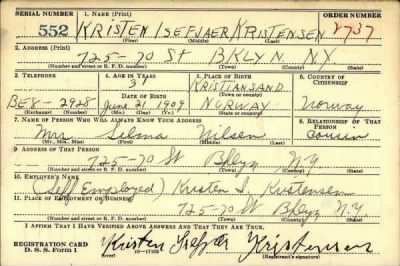 SERIAL NUMBER 1. NAME (Print) ORDER NUMBER
552 KRISTEN ISEFJAER KRISTENSEN 2737
(First) (Middle) (Last)
2. ADDRESS (Print)
725-70 St BKLYN N.Y.
(Number and street or R. F. D. number) (Town) (County) (State)
3. TELEPHONE 4. AGE IN YEARS 5. PLACE OF BIRTH 6. COUNTRY OF CITIZENSHIP
31 KRISTIANSAND
DATE OF BIRTH (Town or county)
BE8-2928 June 21 1909 NORWAY Norway
(Exchange) (Number) (Mo.) (Day) (Yr.) (State or country)
7. NAME OF PERSON WHO WILL ALWAYS KNOW YOUR ADDRESS 8. RELATIONSHIP OF THAT PERSON
Mrs Selma Nilsen Cousin
(Mr., Mrs., Miss) (First) (Middle) (Last)
9. ADDRESS OF THAT PERSON
725-70 St Bklyn N.Y.
(Number and street or R. F. D. number) (Town) (County) (State)
10. EMPLOYER'S NAME
(Self Employed) Kristen I. Kristensen
11. PLACE OF EMPLOYMENT OR BUSINESS
725-70 St Bklyn N.Y.
(Number and street or R. F. D. number) (Town) (County) (State)
I AFFIRM THAT I HAVE VERIFIED ABOVE ANSWERS AND THAT THEY ARE TRUE.
REGISTRATION CARD
D. S. S. FORM 1 Kristen Isefjær Kristensen
(Registrant's signature)